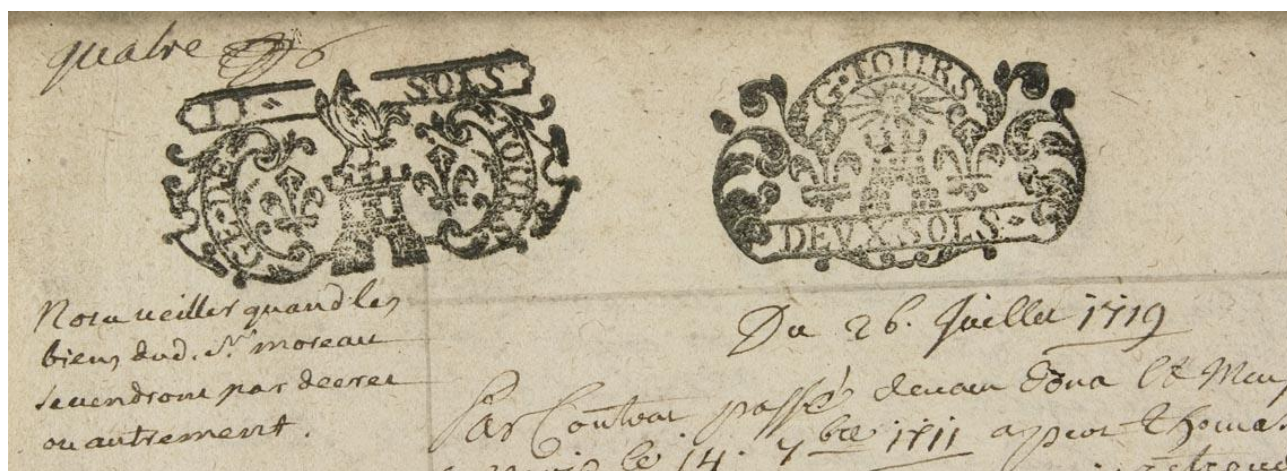 quatre
II SOLS
GE·DE TOURS
G·TOURS
DEVX SOLS
Nota veiller quand les
biens dud. Sr. moreau
se vendront par decret
ou autrement.
Du 26. Juillet 1719
Par Contrat passé devant
le 14. 7bre 1711 appert Thomas